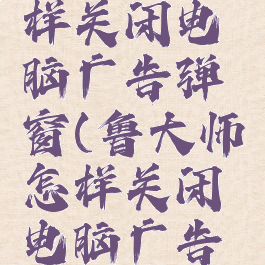 样关闭电
脑广告弹
窗(鲁大师
怎样关闭
电脑广告